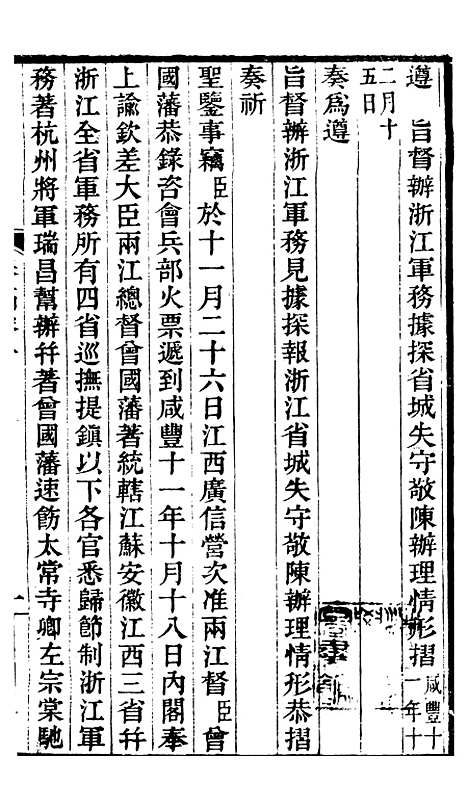 遵　旨督辦浙江軍務據探省城失守敬陳辦理情形摺咸豐十一年十
二月十五日
奏為遵
旨督辦浙江軍務見據探報浙江省城失守敬陳辦理情形恭摺
奏祈
聖鑒事竊臣於十一月二十六日江西廣信營次准兩江督臣曾
國藩恭錄咨會兵部火票遞到咸豐十一年十月十八日內閣奉
上諭欽差大臣兩江總督曾國藩著統轄江蘇安徽江西三省幷
浙江全省軍務所有四省巡撫提鎮以下各官悉歸節制浙江軍
務著杭州將軍瑞昌幫辦幷著曾國藩速飭太常寺卿左宗棠馳